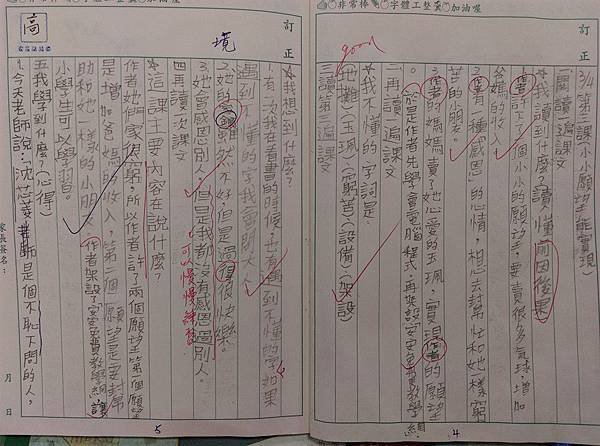 非常棒 字體工整 加油喔
訂正
good
3/4第三課(小小願望能實現)
一.閱讀一遍課文
☆我讀到什麼?讀懂前因後果
1.作者許下一個小小的願望,要賣很多氣球,增加
爸媽的收入。
2.作者有一種「感恩」的心情,想去幫忙和她一樣窮
苦的小朋友。
3.作者的媽媽賣了她心愛的玉珮,實現作者的願望
。於是作者先學會電腦程式,再架設安安免費教學網
二.再讀一遍課文
☆我不懂的字詞是:
(地攤)(玉珮)(窮苦)(設備)(架設)
三.讀第三遍課文
4
非常棒 字體工整 加油喔
訂正
境
☆我想到什麼?
1.有一次我在看書的時候,也有遇到不懂的字,如果
遇到不懂的字我會問大人。
2.她的
雖然不好,但是過得很快樂。
3.她會感恩別人,但是我都沒有感恩過別人。
可以慢慢練習
四.再讀一次課文
☆這一課主要內容在說什麼?
作者她們家很窮,所以作者許了兩個願望,第一個願望
是增加爸媽的收入,第二個願望是要幫
助和她一樣的小朋友。作者架設了安安免費教學網,讓
小學生可以學習。
五.我學到什麼?(心得)
1.今天老師說:「沈芯菱
是個不恥下問的人,
高
家長簽名:
月
日
5